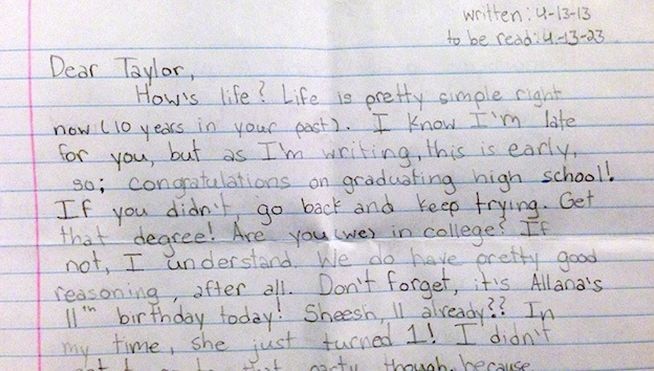 written: 4-13-13
to be read: 4-13-23
Dear Taylor,
How's life? Life is pretty simple right
now (10 years in your past). I know I'm late
for you, but as I'm writing, this is early,
so; congratulations on graduating high school!
If you didn't, go back and keep trying. Get
that degree! Are you (we) in college? If
not, I understand. We do have pretty good
reasoning, after all. Don't forget, it's Allana's
11th birthday today! Sheesh, 11 already?? In
my time, she just turned 1! I didn't
party though, because